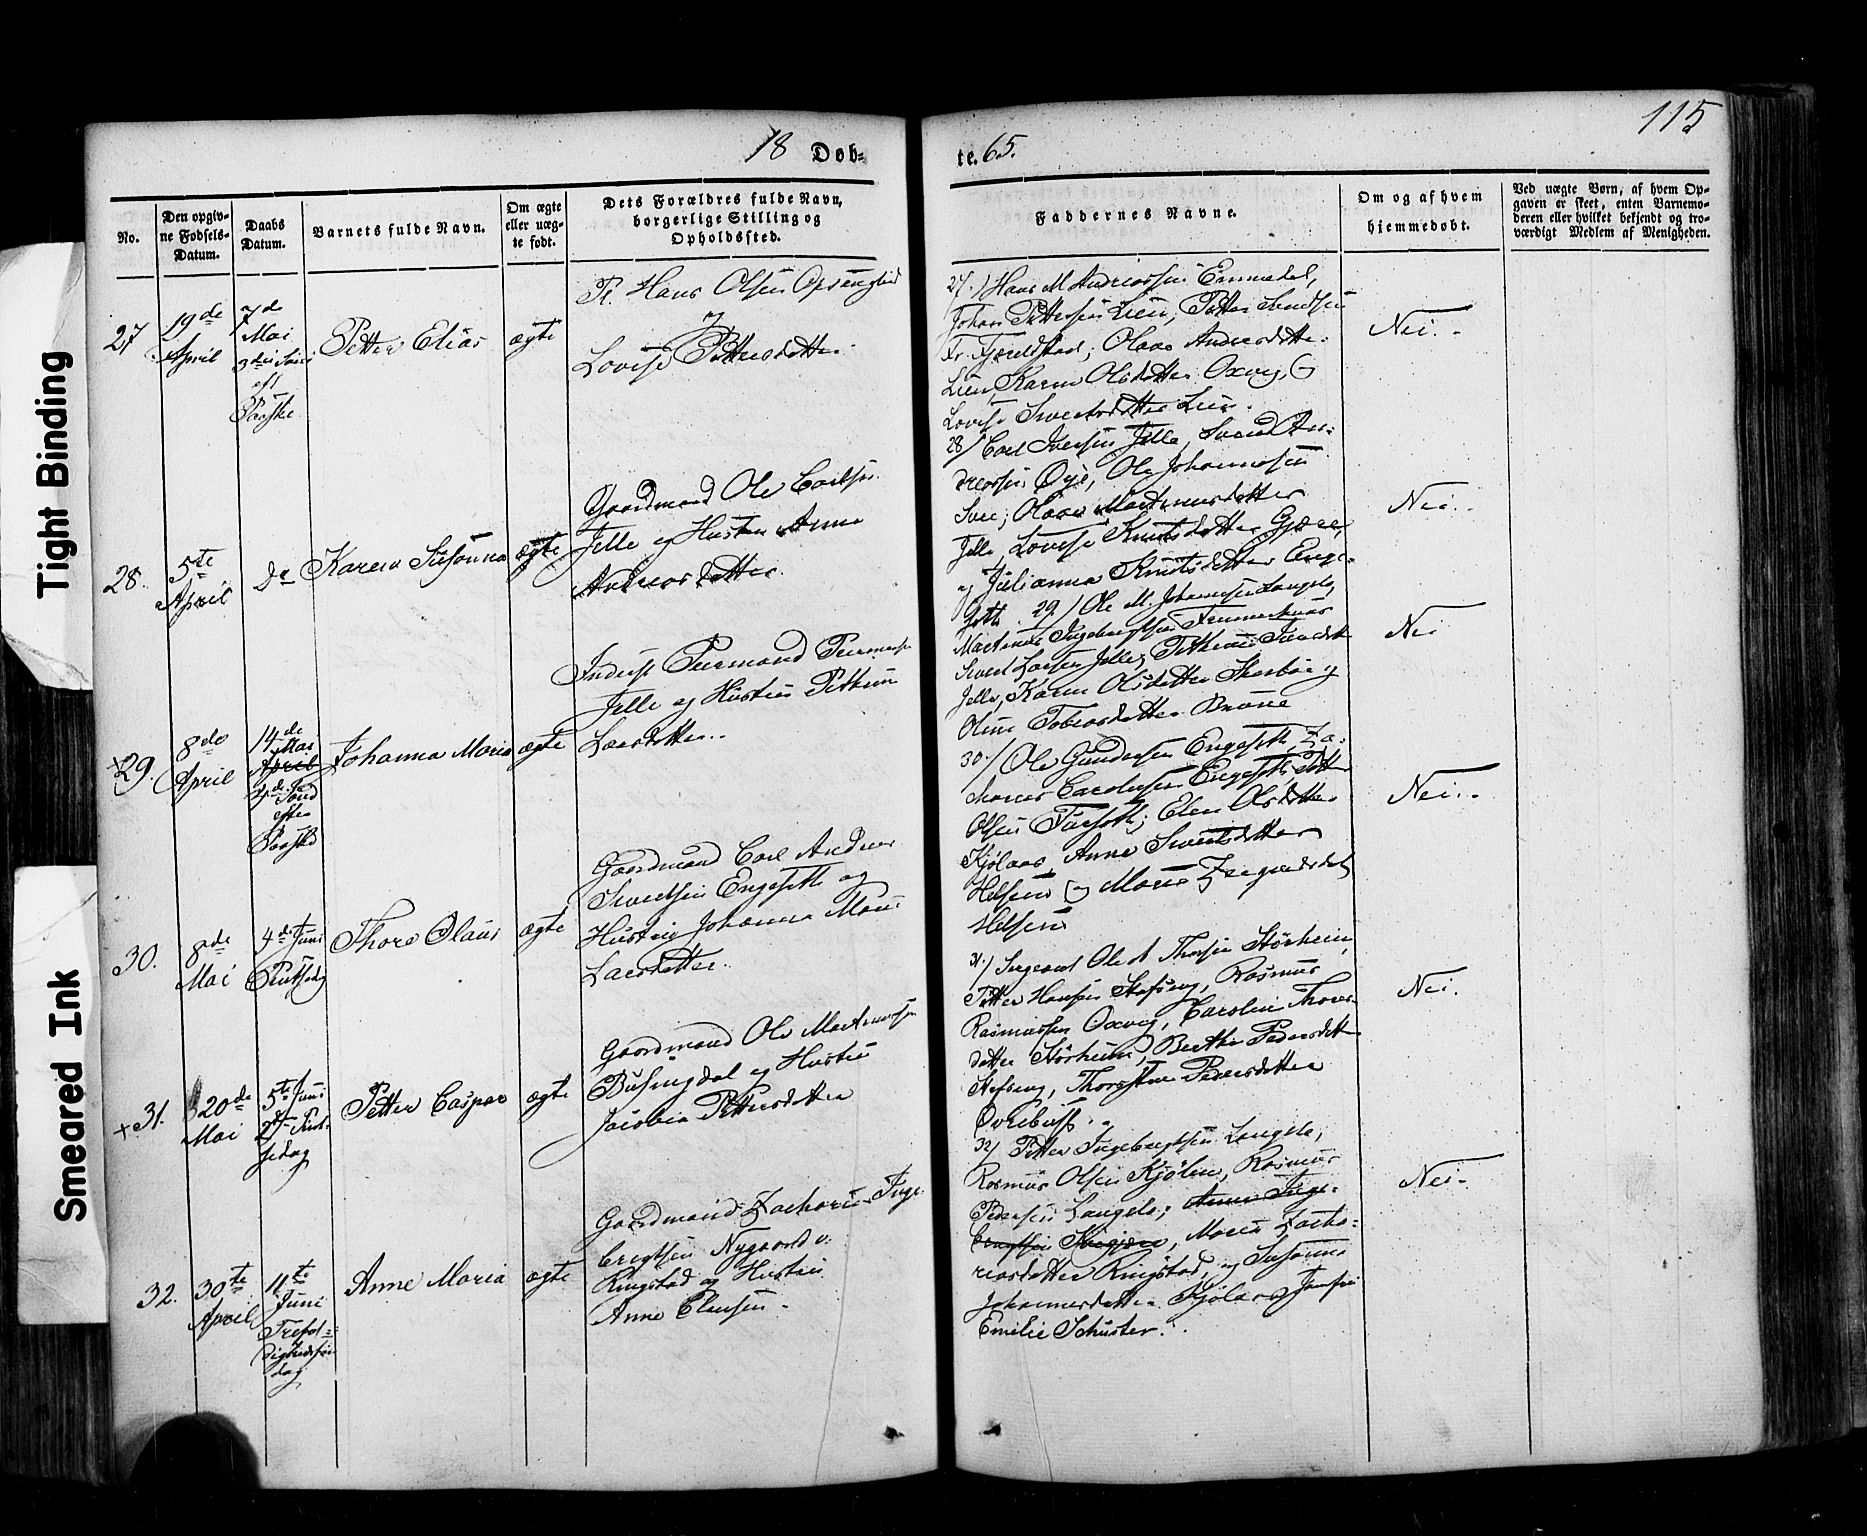 115
18 Dob-
te. 65.
No.
Den opgiv-
ne Fødsels-
Datum.
Daabs
Datum.
Barnets fulde Navn.
Om ægte
eller uæg-
te født.
Dets Forældres fulde Navn,
borgerlige Stilling og
Opholdssted.
Faddernes Navne.
Om og af hvem
hjemmedøbt.
Ved uægte Børn, af hvem Op-
gaven er skeet, enten Barnemo-
deren eller hvilket bekjendt og tro-
værdigt Medlem af Menigheden.
27.
19de
April
7de
Mai
3die Sønd
eft
Paaske
Petter Elias
ægte
Hans Olsen
Lovise Pettersdatter.
27.) Hans M Andreassen Emmedal,
Johan Pettersen Lien, Petter
Fr. Fjeldstad; Olava Andreasdatter
Lien, Karen Olsdatter Oxvig, og
Lovise Sivertsdatter Lien.
Nei.
28.
5te
April
do
Karen Susanna
ægte
Gaardmand Ole Carlsen
Jelle og Hustru Anne
Andreasdatter.
28/ Carl Iversen Jelle, Svend An-
dreassen Øye, Ole Johannesen
Svee; Olava Martinusdatter
Jelle, Lovise Knutsdatter Gjære,
og Julianna Knutsdatter Enge-
seth.
Nei.
+29.
8de
April
14de
Mai
April
4de Sønd
efter
Paaske
Johanna Maria
ægte
Inderst Peermand Peermandsen
Jelle og Hustru Petrine
Larsdatter.
29/ Ole M. Johannesen Langelo,
Martinus Ingebregtsen Femmerhaas
Sivert Larsen Jelle;
Jelle, Karen Olsdatter Skorbøe og
Oline Tobiasdatter Brune
Nei
30.
8de
Mai
4de Juni
Pintsedag
Thore Olaus
ægte
Gaardmand Carl Andreas
Sivertsen Engeseth og
Hustru Johanna Marie
Larsdatter.
30./ Ole Gundersen Engeseth, Za-
charias Carolussen Engeseth, Petter
Olsen Furseth; Elen Olsdatter
Kjølaas, Anne Sivertsdatter
Helsem og Marie
Helsem
Nei.
+31.
20de
Mai
5te Juni
2den Pint-
sedag
Petter Caspar
ægte
Gaardmand Ole Martinussen
Busengdal og Hustru
Jacobia Pettersdatter
31./ Ole A Thorsen Størheim,
Petter Hansen Hafseng, Rasmus
Rasmussen Oxvig, Caroline Thores-
datter Størheim, Berthe Pedersdatter
Hafseng, Thorstine Pedersdatter
Øvrebust.
Nei.
32.
30te
April
11te
Juni
Trefol-
digheds søn
dag
Anne Maria
ægte
Gaardmand Zacharias Inge-
brigtsen Nygaard v.
Ringstad og Hustru
Anne Clausen.
32/ Petter Ingebrigtsen Langelo,
Rasmus Olsen Kjølen, Rasmus
Pedersen Langelo; Anne Inge-
brigtsen, Marie Zacha-
riasdatter Ringstad, og Susanne
Johannesdatter Kjølaas, Jomfru
Emilie Schuster.
Nei.
Tight Binding
Smeared Ink